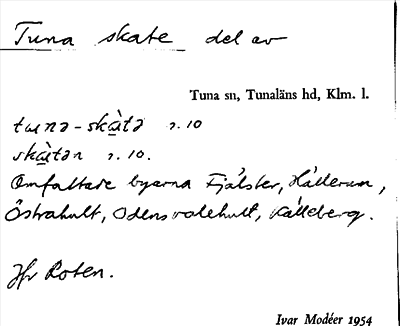 Tuna skate del av
Tuna sn, Tunaläns hd, Klm. l.
tuna-skàtə 2.10
skàtən 2.10.
Omfattare byarna Fjälster, Hällerum,
Östrahult, Odensvalehult, Källeberg.
Jfr Roten.
Ivar Modéer 1954